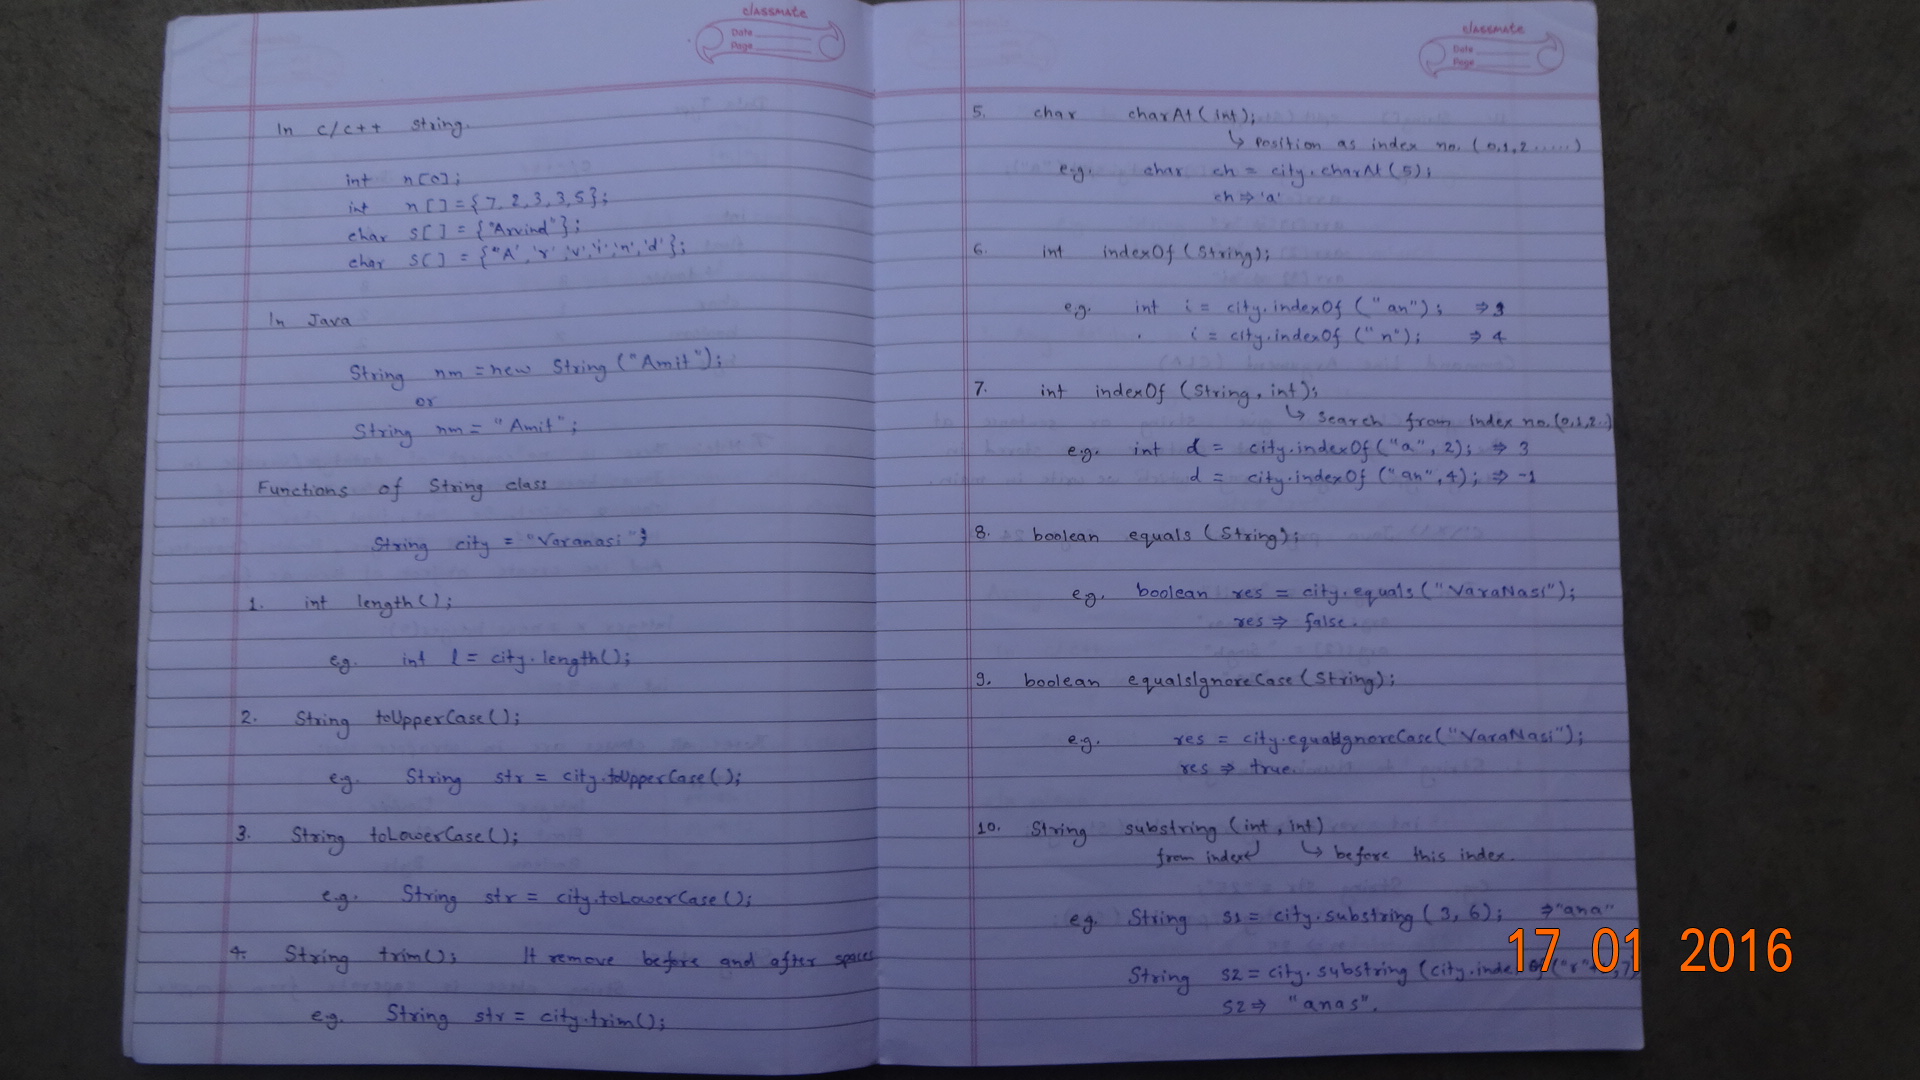 classmate
Date
Page
In c/c++ string.
int n[0];
int n[] = {7, 2, 3, 3, 5};
char s[] = {"Arvind"};
char s[] = {"A', 'r', 'v', 'i', 'n', 'd'};
In Java
String nm = new String ("Amit");
or
String nm = "Amit";
Functions of String class
String city = "Varanasi";
1. int length();
eg. int l = city.length();
2. String toUpperCase();
eg. String str = city.toUpperCase();
3. String toLowerCase();
e.g. String str = city.toLowerCase();
4. String trim(); It remove before and after spaces
e.g. String str = city.trim();
classmate
Date
Page
5. char charAt(int);
↳ position as index no. (0,1,2......)
e.g. char ch = city.charAt(5);
ch ⇒ 'a'
6. int indexOf (String);
e.g. int i = city.indexOf ("an"); ⇒ 3
i = city.indexOf ("n"); ⇒ 4
7. int indexOf (String, int);
↳ search from index no.(0,1,2..)
e.g. int d = city.indexOf("a", 2); ⇒ 3
d = city.indexOf ("an",4); ⇒ -1
8. boolean equals (String);
e.g. boolean res = city.equals ("VaraNasi");
res ⇒ false.
9. boolean equalsIgnoreCase (String);
e.g. res = city.equalsIgnoreCase("VaraNasi");
res ⇒ true
10. String substring (int, int)
from index ↳ before this index.
eg. String s1 = city.substring (3, 6); ⇒ "ana"
String s2 = city.substring (city.indexOf("r"
s2 ⇒ "anas".
17 01 2016